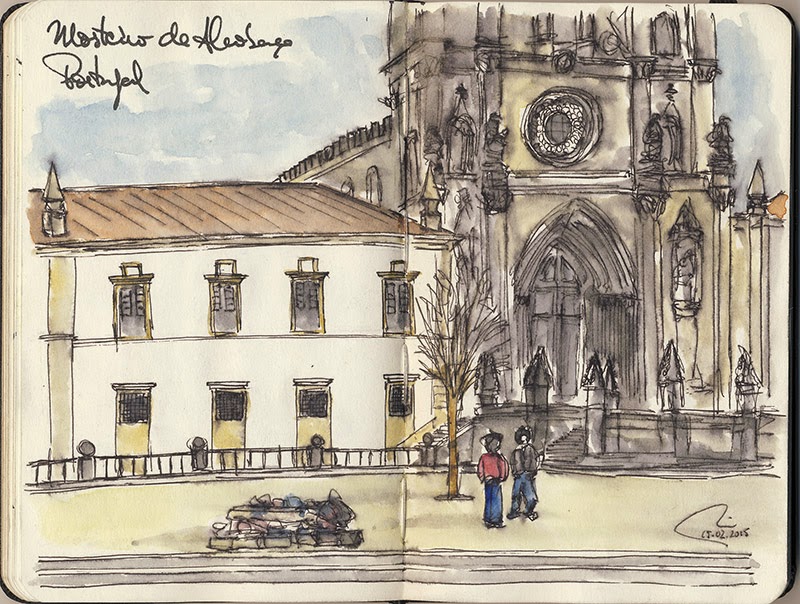 Mosteiro de Alcobaça
Portugal
15.02.2015